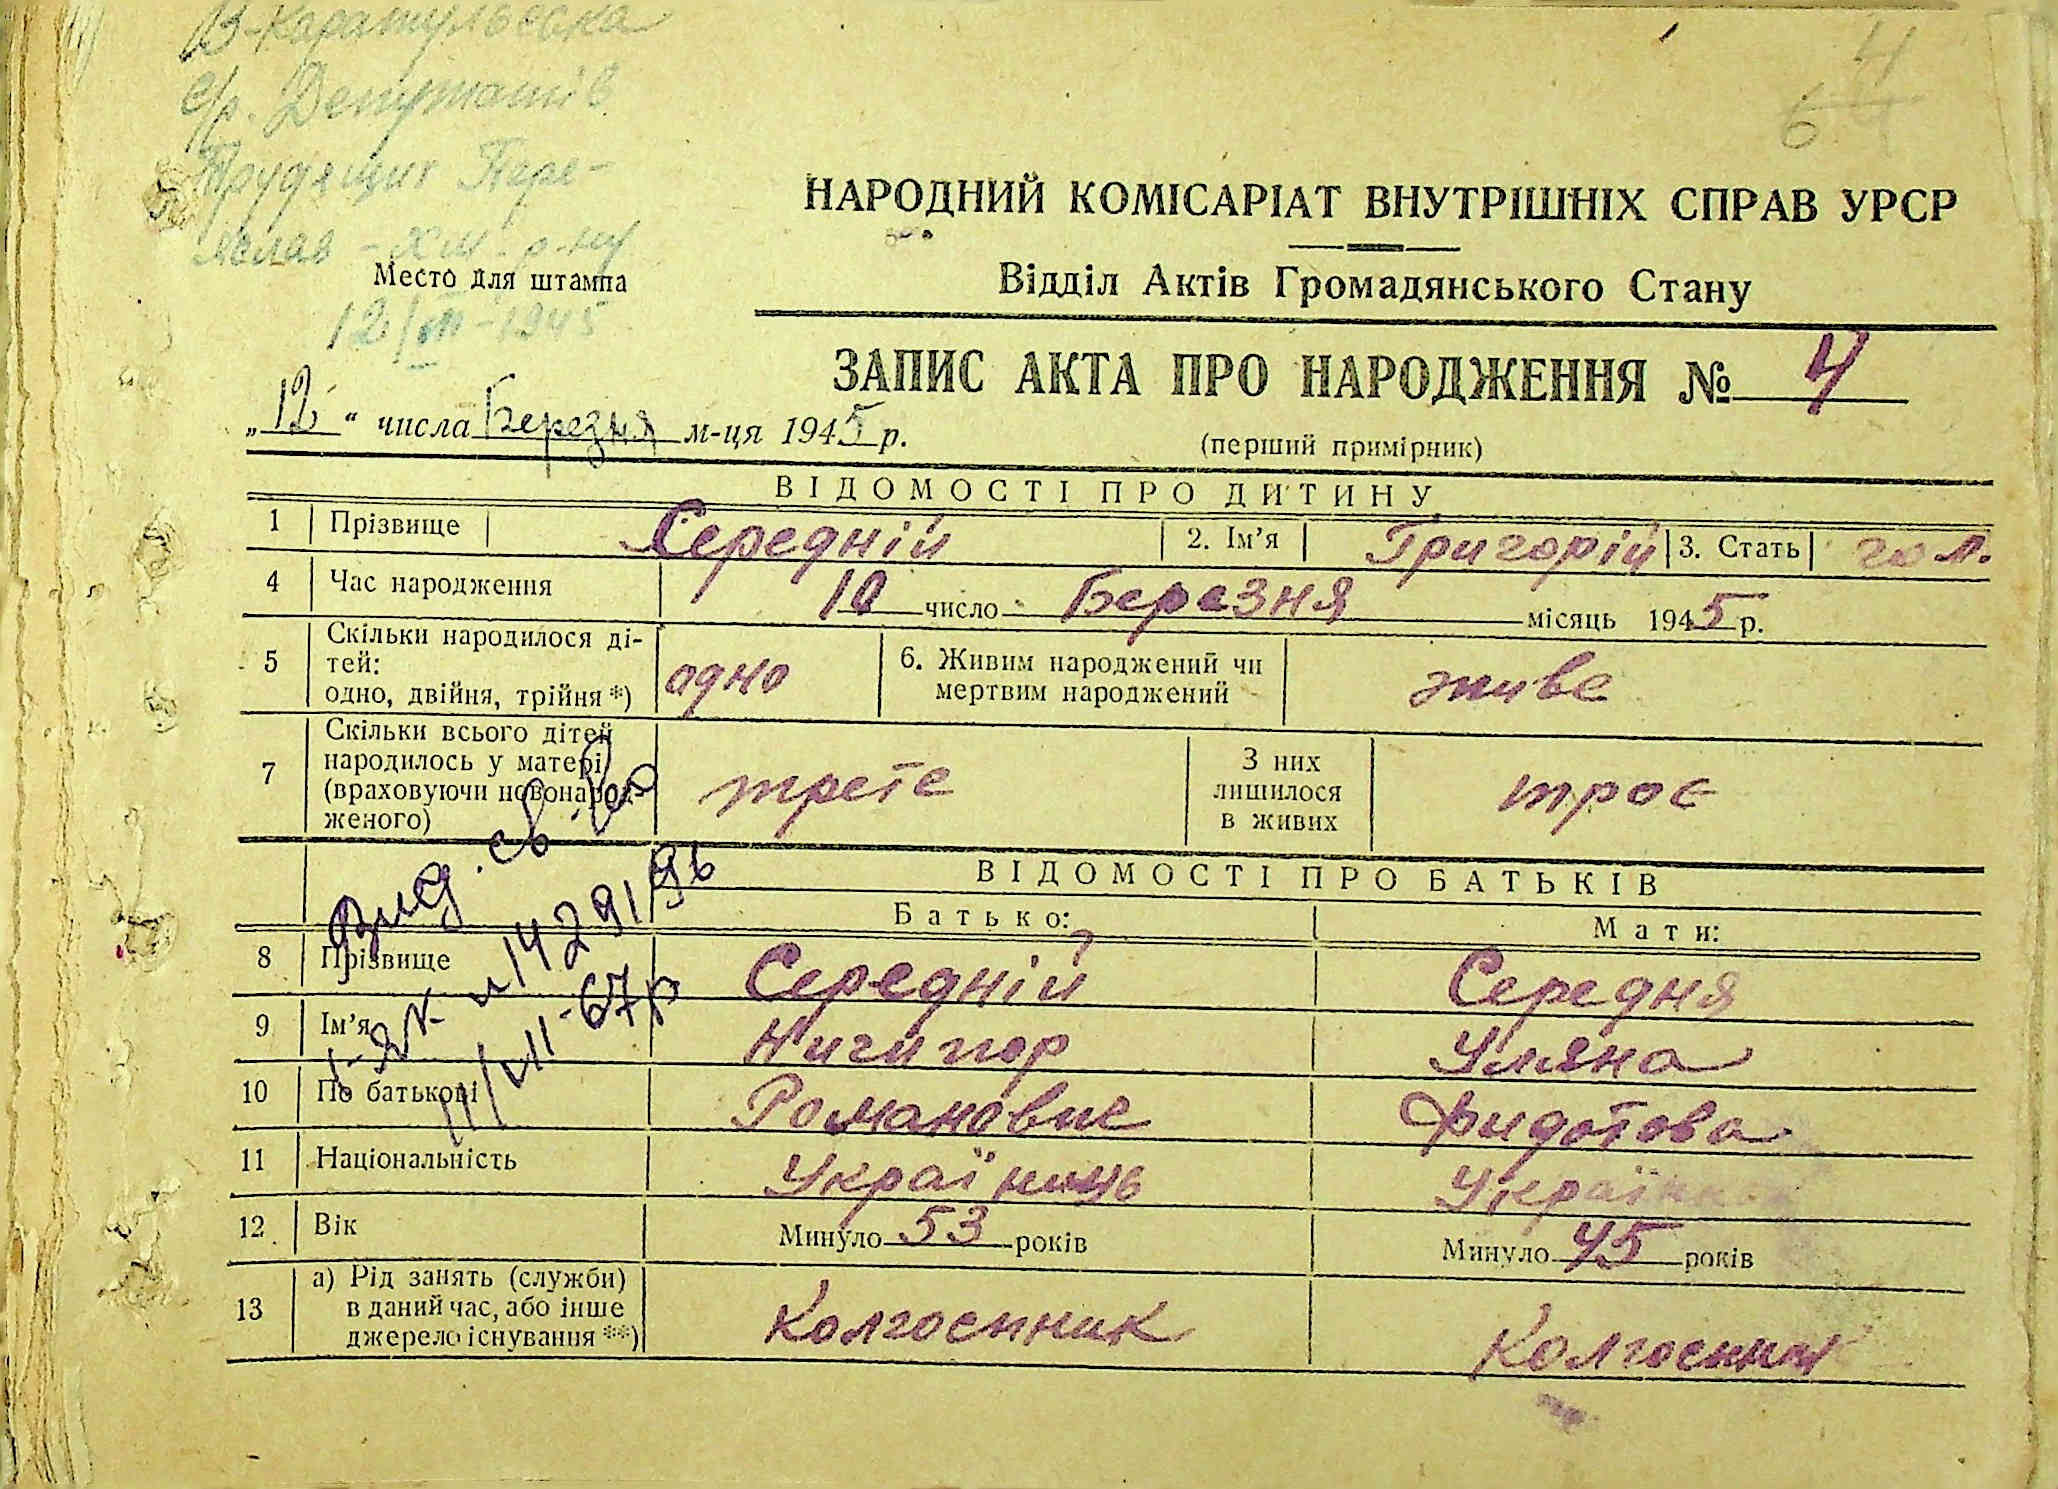 В-Каратульська
с/р. Депутатів
Трудящих Пере-
яслав-Хм. р-ну
Место для штампа
12/III-1945
4
6
НАРОДНИЙ КОМІСАРІАТ ВНУТРІШНІХ СПРАВ УРСР
Відділ Актів Громадянського Стану
ЗАПИС АКТА ПРО НАРОДЖЕННЯ № 4
„12“ числа Березня м-ця 1945 р.
(перший примірник)
ВІДОМОСТІ ПРО ДИТИНУ
1 Прізвище Середній 2. Ім'я Григорій 3. Стать чол.
4 Час народження 10 число Березня місяць 1945 р.
5 Скільки народилося ді-
тей:
одно, двійня, трійня *) одно 6. Живим народжений чи
мертвим народжений живе
7 Скільки всього дітей
народилось у матері
(враховуючи новонарод-
женого) трете З них
лишилося
в живих троє
Вид. св-во
14291
11/VII-67р
ВІДОМОСТІ ПРО БАТЬКІВ
Батько: Мати:
8 Прізвище Середній Середня
9 Ім'я Ничипор Уляна
10 По батькові Романович Фидотова
11 Національність Українець Українка
12 Вік Минуло 53 років Минуло 45 років
13 а) Рід занять (служби)
в даний час, або інше
джерело існування **) Колгоспник Колгоспник